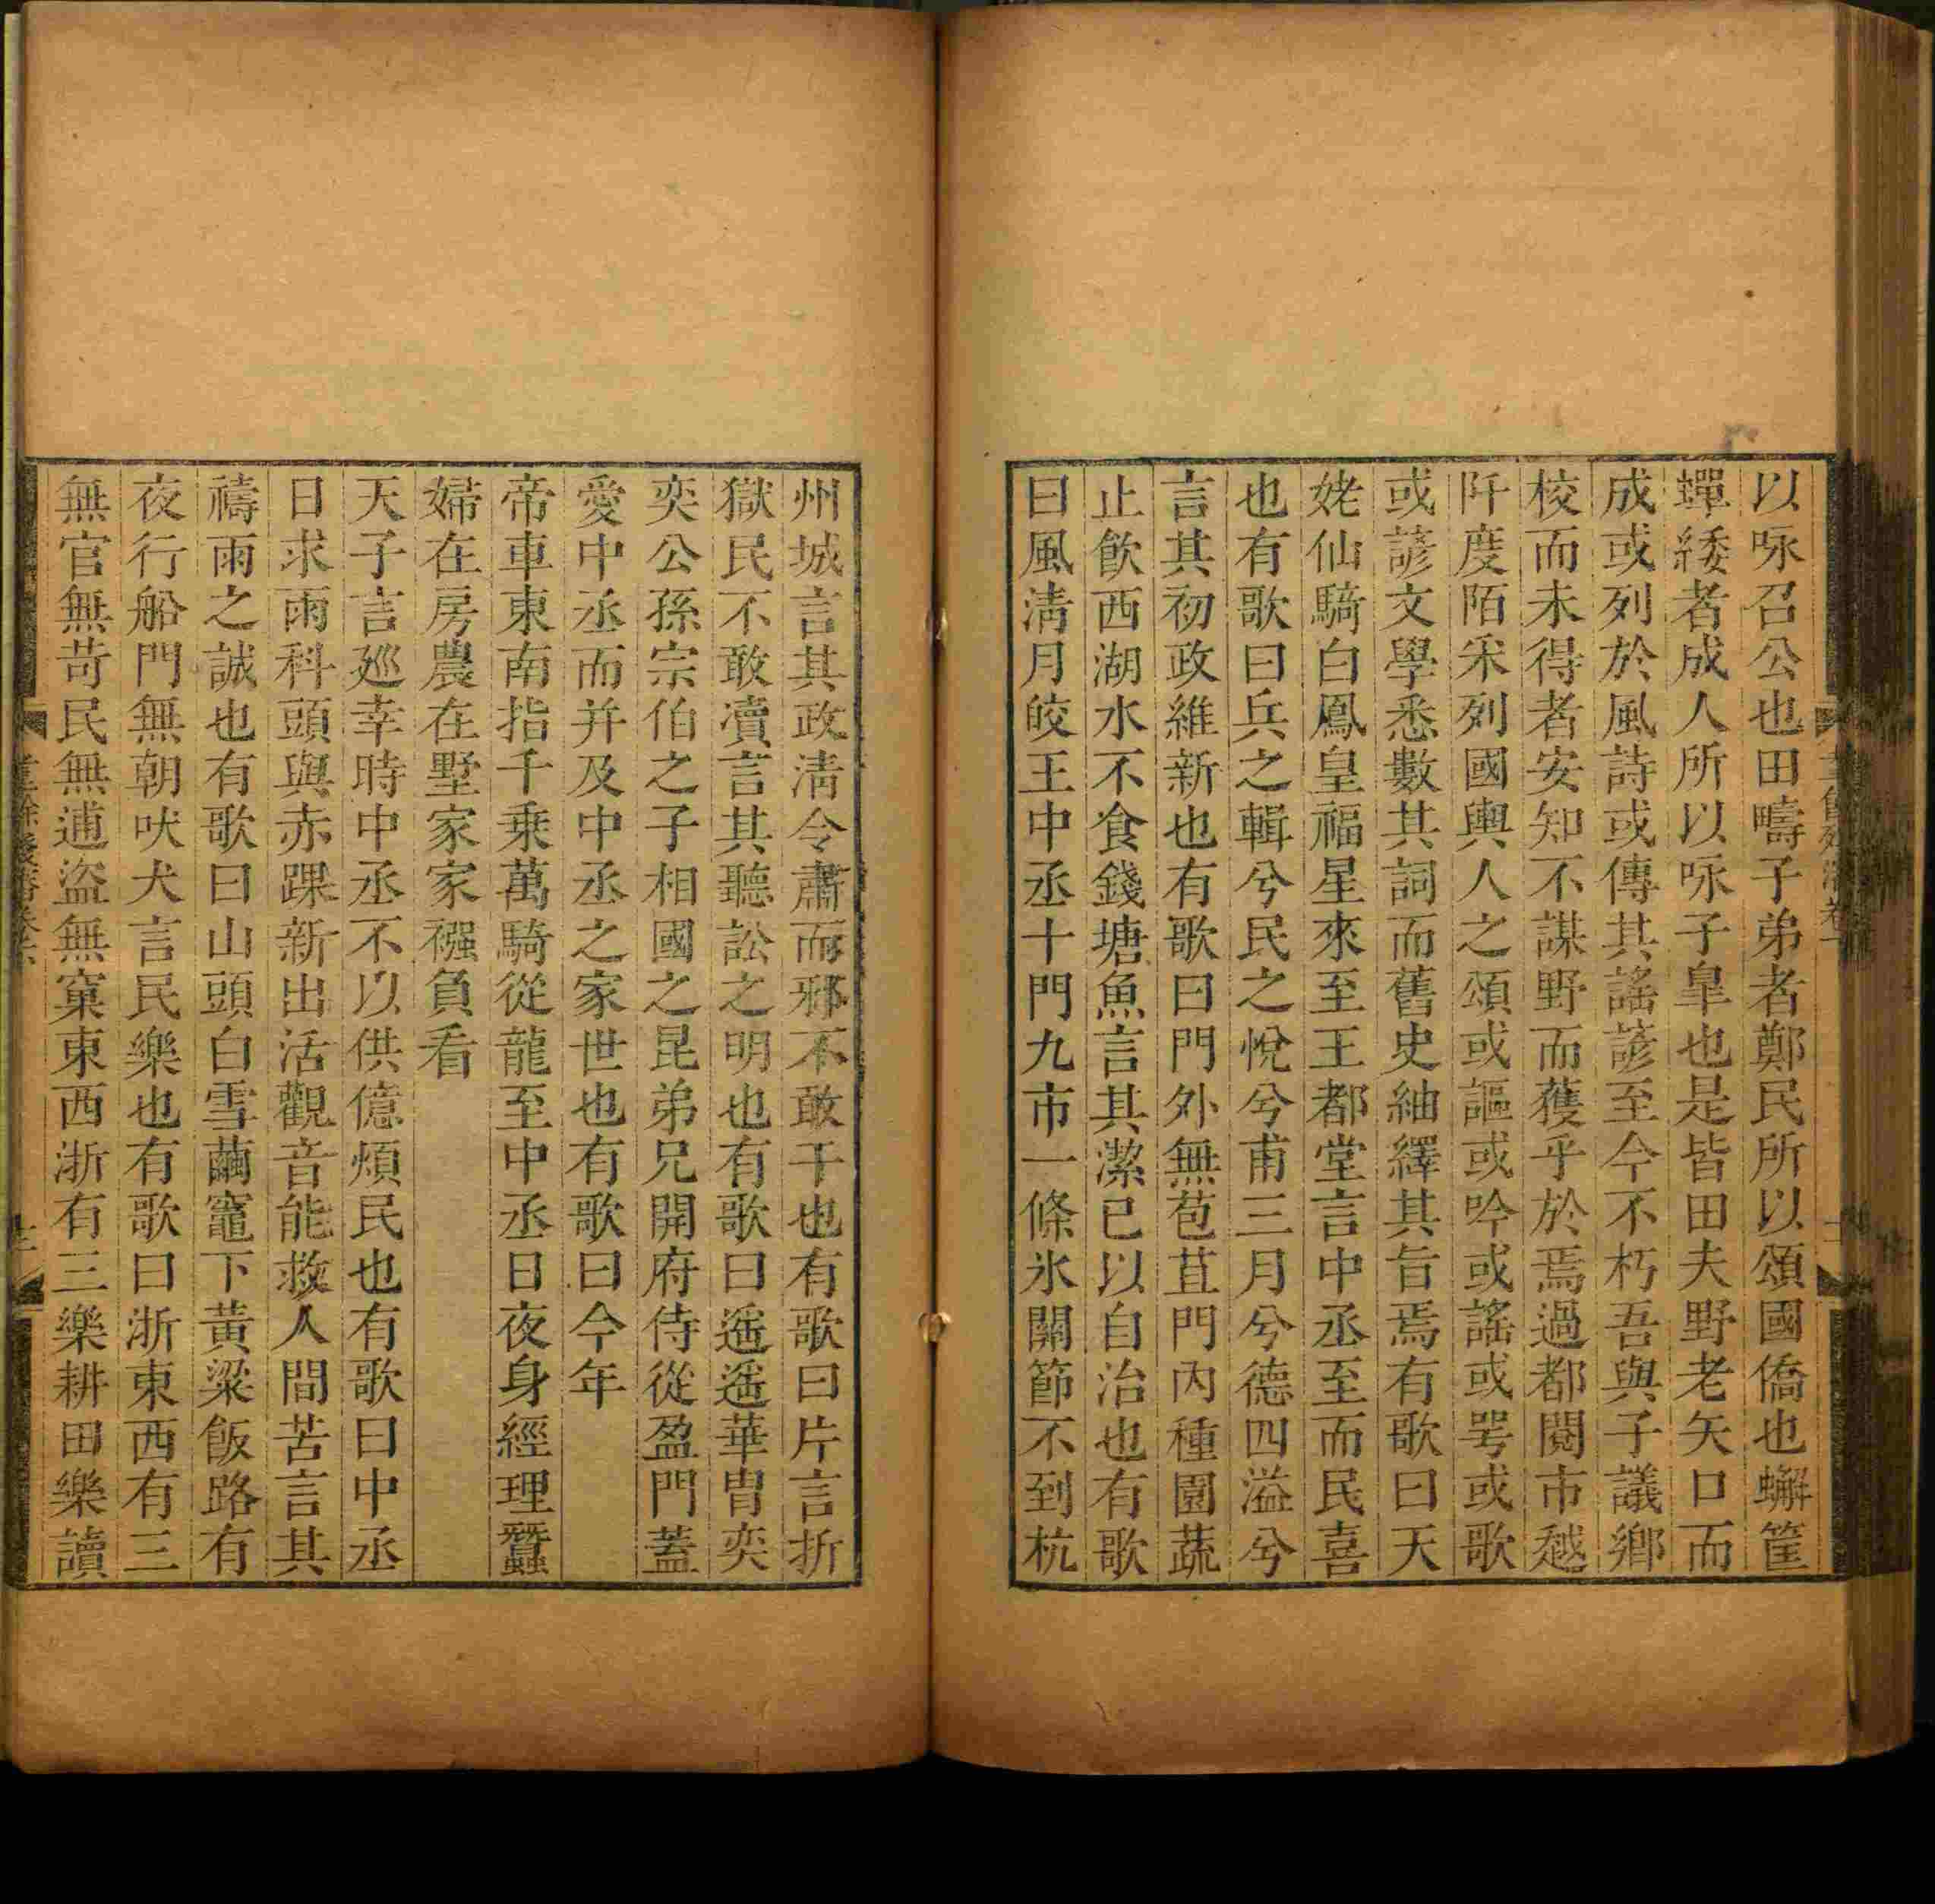 以咏召公也田疇子弟者鄭民所以頌國僑也蠏筐
蟬緌者成人所以咏子臯也是皆田夫野老矢口而
成或列於風詩或傳其謠諺至今不朽吾與子議鄉
校而未得者安知不謀野而獲乎於焉過都閱市越
阡度陌采列國輿人之頌或謳或吟或謠或咢或歌
或諺文學悉數其詞而舊史紬繹其旨焉有歌曰天
姥仙騎白鳳皇福星來至王都堂言中丞至而民喜
也有歌曰兵之輯兮民之悅兮甫三月兮德四溢兮
言其初政維新也有歌曰門外無苞苴門內種園蔬
止飲西湖水不食錢塘魚言其潔已以自治也有歌
曰風淸月皎王中丞十門九市一條氷關節不到杭
州城言其政淸令肅而邪不敢干也有歌曰片言折
獄民不敢瀆言其聽訟之明也有歌曰遥遥華胄奕
奕公孫宗伯之子相國之昆弟兄開府侍從盈門蓋
愛中丞而并及中丞之家世也有歌曰今年
帝車東南指千乗萬騎從龍至中丞日夜身經理蠶
婦在房農在墅家家襁負看
天子言廵幸時中丞不以供億煩民也有歌曰中丞
日求雨科頭與赤踝新出活觀音能救人間苦言其
禱雨之誠也有歌曰山頭白雪繭竈下黃粱飯路有
夜行船門無朝吠犬言民樂也有歌曰浙東西有三
無官無苛民無逋盜無窠東西浙有三樂耕田樂讀